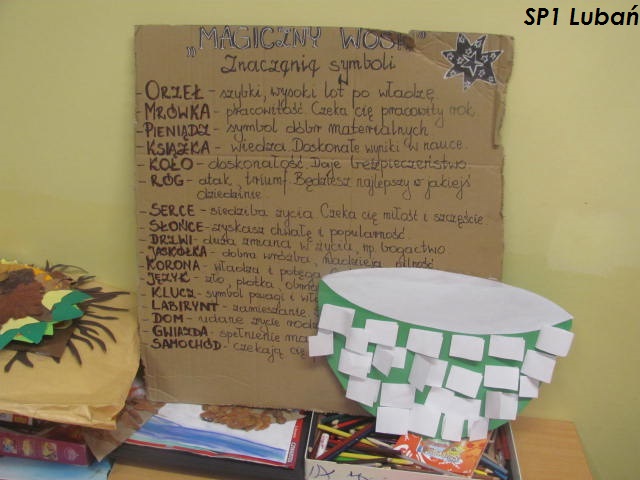 SP1 Lubań
„MAGICZNY WOSK"
Znaczęnią symboli
- ORZEŁ - szybki, wysoki lot po władzę.
- MRÓWKA - pracowitość. Czeka cię pracowity rok.
- PIENIĄDZ - symbol dóbr materialnych
- KSIĄŻKA - wiedza. Doskonałe wyniki w nauce.
- KOŁO - doskonałość. Daje bezpieczeństwo.
- RÓG - atak, triumf. Będziesz najlepszy w jakiejś
dziedzinie.
- SERCE - siedziba życia. Czeka cię miłość i szczęście.
- SŁOŃCE - zyskasz chwałę i popularność.
- DRZWI - duża zmiana w życiu, np. bogactwo.
- JASKÓŁKA - dobra wróżba, nadzieja, pilność
- KORONA - władza i potęga.
- JĘZYK - zło, plotka,
- KLUCZ - symbol
- LABIRYNT - zamieszanie.
- DOM - udane życie
- GWIAZDA - spełnienie
- SAMOCHÓD - czekają cię